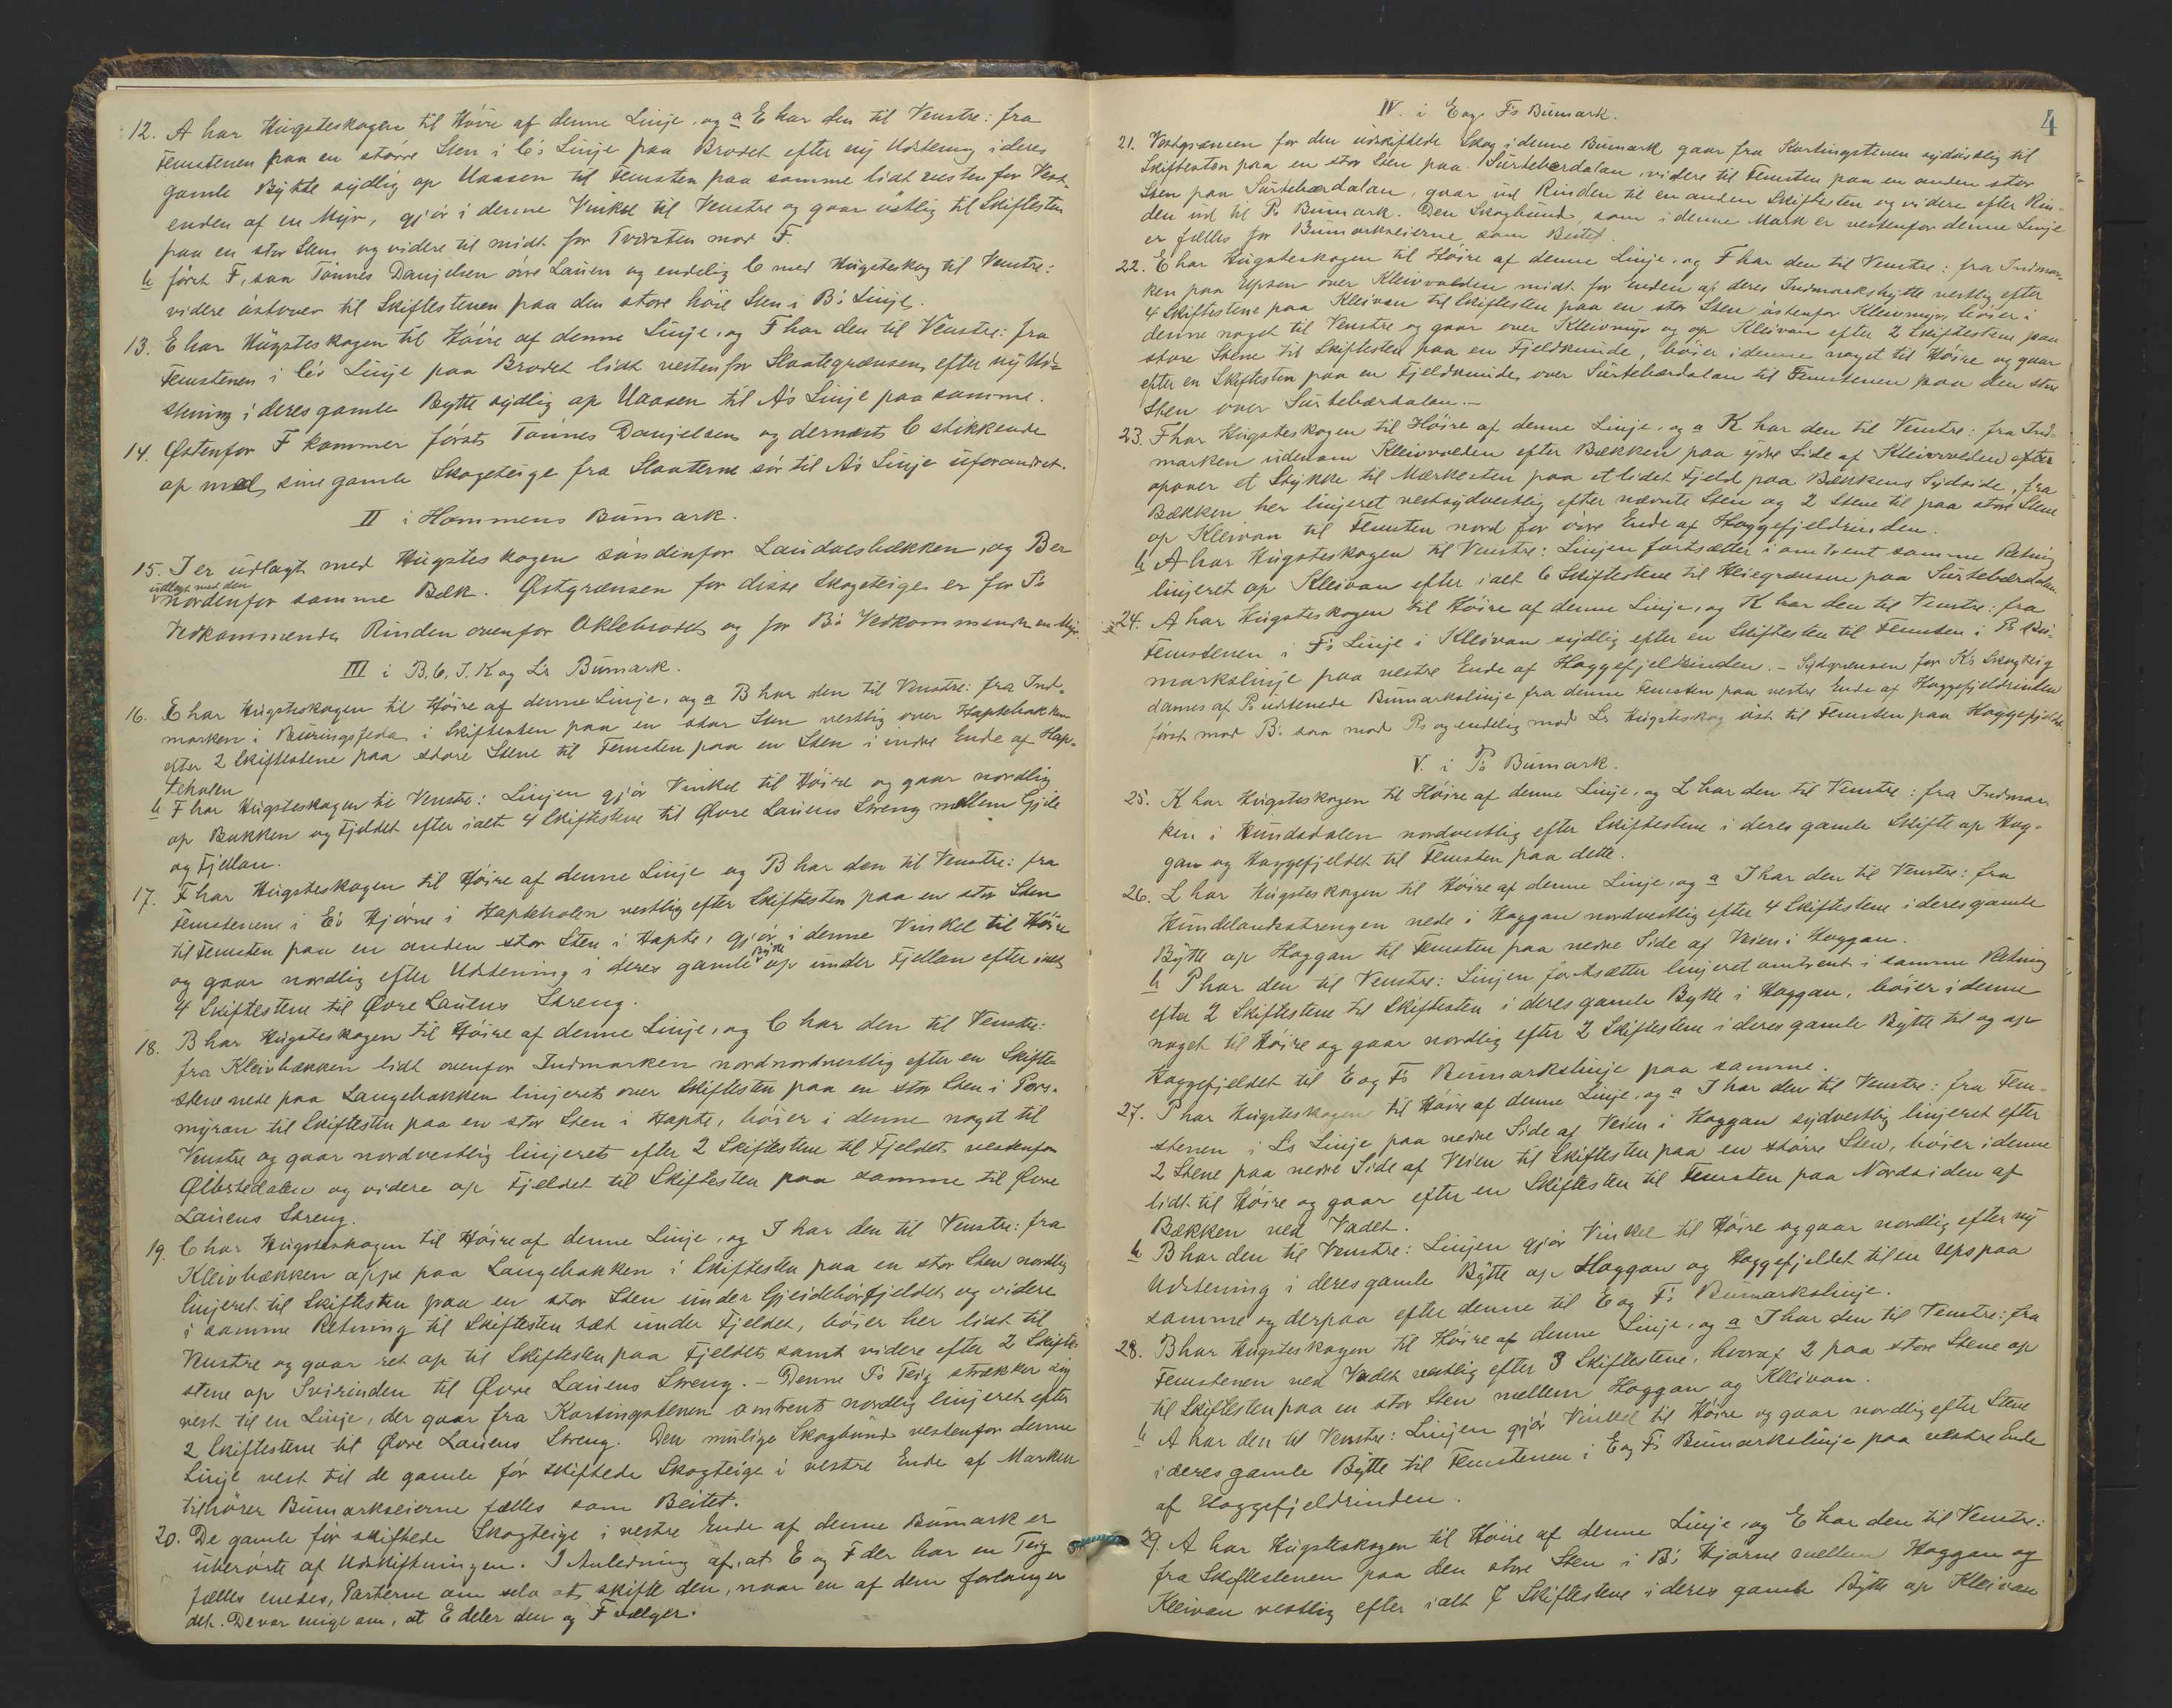 12. A har Hugsteskogen til Høire af denne Linje, og a E har den til Venstre: fra
Femstenen paa en større Sten i C's Linje paa Brodet efter ny Udstening i deres
gamle Bytte sydlig op Uaasen til Femsten paa samme lidt vesten for Vest-
enden af en Myr, gjør i denne Vinkel til Venstre og gaar østlig til Skiftesten
paa en stor Sten og videre til midt for Tværsten mod F.
b først F, saa Tønnes Danjelsen øvre Lauen og endelig C med Hugsteskog til Venstre:
videre østover til Skiftestenen paa den store høie Sten i B's Linje.
13. E har Hugsteskogen til Høire af denne Linje, og F har den til Venstre: fra
Femstenen i C's Linje paa Brodet lidt vestenfor Slaattegrænsen, efter ny Ud-
stening i deres gamle Bytte sydlig op Uaasen til A's Linje paa samme.
14. Østenfor F kommer først Tønnes Danjelsen og dernæst C stikkende
op med sine gamle Skogteige fra Slaatterne sør til A's Linje uforandret.
II i Hommens Bumark.
15. I er udlagt med Hugsteskogen søndenfor Laudalsbækken, og B er
udlagt med den
nordenfor samme Bæk. Østgrænsen for disse Skogteige er for I's
Vedkommende Rinden ovenfor Oklebrodet og for B's Vedkommende en Myr.
III i B. C. I. K og L's Bumark.
16. E har Hugsteskogen til Høire af denne Linje, og a B har den til Venstre: fra Ind-
marken i Buringsfeda i Skiftesten paa en stor Sten vestlig over Haptebakken
efter 2 Skiftestene paa store Stene til Femsten paa en Sten i indre Ende af Hap-
teholen
b F har Hugsteskogen til Venstre: Linjen gjør Vinkel til Høire og gaar nordlig
op Bakken og Fjeldet efter ialt 4 Skiftestene til Øvre Lauens Streng mellem Gjile
og Fjellan.
17. F har Hugsteskogen til Høire af denne Linje og B har den til Venstre: fra
Femstenene i E's Hjørne i Hapteholen vestlig efter Skiftesten paa en stor Sten
til Femsten paa en anden stor Sten i Hapte, gjør i denne Vinkel til Høire
og gaar nordlig efter Udstening i deres gamle Bytte op under Fjellan efter ialt
4 Skiftestene til Øvre Lauens Streng.
18. B har Hugsteskogen til Høire af denne Linje, og C har den til Venstre:
fra Kleivbækken lidt ovenfor Indmarken nordnordvestlig efter en Skifte-
stene nede paa Langebakken linjeret over Skiftesten paa en stor Sten i Pors-
myran til Skiftesten paa en stor Sten i Hapte, bøier i denne noget til
Venstre og gaar nordvestlig linjeret efter 2 Skiftestene til Fjeldet vestenfor
Ølbstedalen og videre op Fjeldet til Skiftesten paa samme til Øvre
Lauens Streng.
19. C har Hugsteskogen til Høire af denne Linje, og I har den til Venstre: fra
Kleivbækken oppe paa Langebakken i Skiftesten paa en stor Sten nordlig
linjeret til Skiftesten paa en stor Sten under Gjeidehørfjeldet og videre
i samme Retning til Skiftesten tæt under Fjeldet, bøier her lidt til
Venstre og gaar ret op til Skiftesten paa Fjeldet samt videre efter 2 Skifte-
stene op Svirinden til Øvre Lauens Streng. – Denne I's Teig strækker sig
vest til en Linje, der gaar fra Kortingstenen omtrent nordlig linjeret efter
2 Skiftestene til Øvre Lauens Streng. Den mulige Skogbund vestenfor denne
Linje vest til de gamle før skiftede Skogteige i vestre Ende af Marken
tilhører Bumarkseierne fælles som Beitet.
20. De gamle før skiftede Skogteige i vestre Ende af denne Bumark er
uberørte af Udskiftningen. I Anledning af, at E og F der har en Teig
fælles enedes, Parterne om selv at skifte den, naar en af dem forlanger
det. De var enige om, at E deler den og F vælger.
4
IV. i E og F's Bumark.
21. Vestgrænsen for den udskiftede Skog i denne Bumark gaar fra Kortingstenen sydøstlig til
Skiftesten paa en stor Sten paa Surtebærdalan, videre til Femsten paa en anden stor
Sten paa Surtebærdalan, gaar ud Rinden til en anden Skiftesten og videre efter Rin-
den ud til P's Bumark. Den Skogbund, som i denne Mark er vestenfor denne Linje
er fælles for Bumarkseierne som Beitet.
22. E har Hugsteskogen til Høire af denne Linje, og F har den til Venstre: fra Indmar-
ken paa Upsen over Kleivvolden midt for Enden af deres Indmarksbytte vestlig efter
4 Skiftestene paa Kleivan til Skiftesten paa en stor Sten østenfor Kleivmyr, bøier i
denne noget til Venstre og gaar over Kleivmyr og op Kleivan efter 2 Skiftestene paa
store Stene til Skiftesten paa en Fjeldknude, bøier i denne noget til Høire og gaar
efter en Skiftesten paa en Fjeldknude over Surtebærdalan til Femstenen paa den store
Sten over Surtebærdalan. –
23. F har Hugsteskogen til Høire af denne Linje, og a K har den til Venstre: fra Ind-
marken udenom Kleivvolden efter Bækken paa ydre Side af Kleivvolden efter
opover et Stykke til Mærkesten paa et lidet Fjeld paa Bækkens Sydside, fra
Bækken her linjeret vestsydvestlig efter nævnte Sten og 2 Stene til paa store Stene
op Kleivan til Femsten nord for øvre Ende af Hoggefjeldrinden.
b A har Hugsteskogen til Venstre: Linjen fortsætter i omtrent samme Retning
linjeret op Kleivan efter ialt 6 Skiftestene til Heiegrænsen paa Surtebærdalan.
24. A har Hugsteskogen til Høire af denne Linje, og K har den til Venstre: fra
Femstenen i F's Linje i Kleivan sydlig efter en Skiftesten til Femsten i P's Bu-
markslinje paa vestre Ende af Hoggefjeldrinden. – Sydgrænsen for K's Skogteig
dannes af P's udstenede Bumarkslinje fra denne Femsten paa vestre Ende af Hoggefjeldrinden
først mod B's saa mod P's og endelig mod L's Hugsteskog øst til Femsten paa Hoggefjeldet.
V. i P's Bumark.
25. K har Hugsteskogen til Høire af denne Linje, og L har den til Venstre: fra Indmar-
ken i Hundsdalen nordvestlig efter Skiftestene i deres gamle Skifte op Hog-
gan og Hoggefjeldet til Femsten paa dette.
26. L har Hugsteskogen til Høire af denne Linje, og a I har den til Venstre: fra
Hundelandsstrengen nede i Hoggan nordvestlig efter 4 Skiftestene i deres gamle
Bytte op Hoggan til Femsten paa nedre Side af Veien i Hoggan.
b P har den til Venstre: Linjen fortsætter linjeret omtrent i samme Retning
efter 2 Skiftestene til Skiftesten i deres gamle Bytte i Hoggan, bøier i denne
noget til Høire og gaar nordlig efter 2 Skiftestene i deres gamle Bytte til og op
Hoggefjeldet til E og F's Bumarkslinje paa samme.
27. P har Hugsteskogen til Høire af denne Linje, og a I har den til Venstre: fra Fem-
stenen i L's Linje paa nedre Side af Veien i Hoggan sydvestlig linjeret efter
2 Stene paa nedre Side af Veien til Skiftesten paa en større Sten, bøier i denne
lidt til Høire og gaar efter en Skiftesten til Femsten paa Nordsiden af
Bækken ved Vadet.
b B har den til Venstre: Linjen gjør Vinkel til Høire og gaar nordlig efter ny
Udstening i deres gamle Bytte op Hoggan og Hoggefjeldet til en Ups paa
samme og derpaa efter denne til E og F's Bumarkslinje.
28. B har Hugsteskogen til Høire af denne Linje, og a I har den til Venstre: fra
Femstenen ved Vadet vestlig efter 3 Skiftestene, hvoraf 2 paa store Stene op
til Skiftesten paa en stor Sten mellem Hoggan og Kleivan.
b A har den til Venstre: Linjen gjør Vinkel til Høire og gaar nordlig efter Stene
i deres gamle Bytte til Femstenen i E og F's Bumarkslinje paa vestre Ende
af Hoggefjeldrinden.
29. A har Hugsteskogen til Høire af denne Linje, og E har den til Venstre:
fra Skiftestenen paa den store Sten i B's Hjørne mellem Hoggan og
Kleivan vestlig efter ialt 7 Skiftestene i deres gamle Bytte op Kleivan